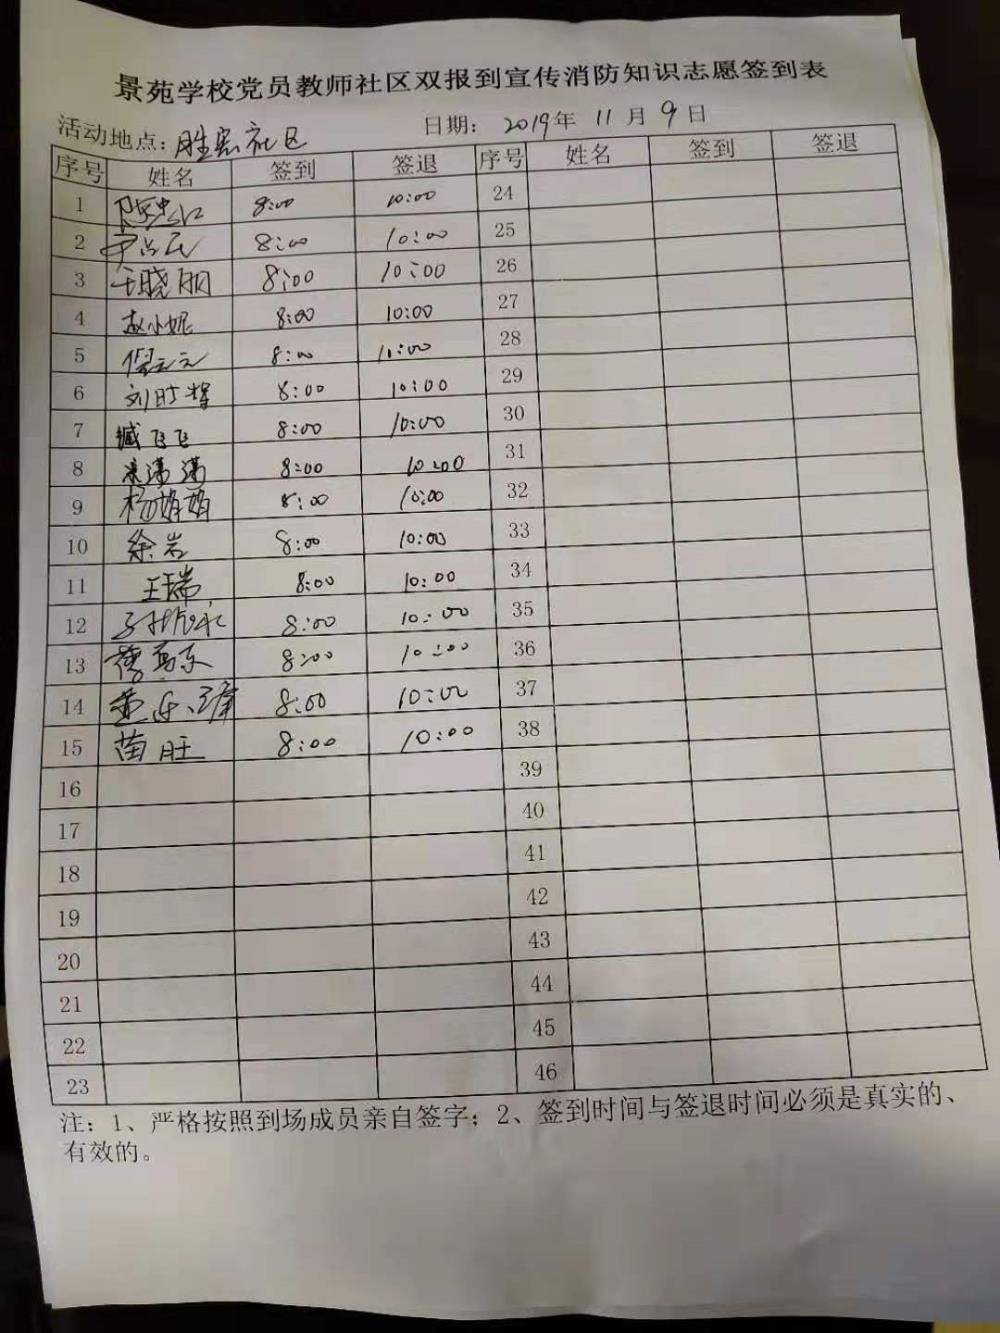 景苑学校党员教师社区双报到宣传消防知识志愿签到表
活动地点：胜宏社区 日期： 2019年 11 月 9 日
序号 姓名 签到 签退 序号 姓名 签到 签退
1 8:00 10:00 24
2 8:00 10:00 25
3 王晓丽 8:00 10:00 26
4 赵小妮 8:00 10:00 27
5 倪云云 8:00 10:00 28
6 刘时辉 8:00 10:00 29
7 臧飞飞 8:00 10:00 30
8 满满 8:00 10:00 31
9 杨娟娟 8:00 10:00 32
10 徐岩 8:00 10:00 33
11 王瑞 8:00 10:00 34
12 8:00 10:00 35
13 8:00 10:00 36
14 8:00 10:00 37
15 苗旺 8:00 10:00 38
16 39
17 40
18 41
19 42
20 43
21 44
22 45
23 46
注：1、严格按照到场成员亲自签字；2、签到时间与签退时间必须是真实的、
有效的。